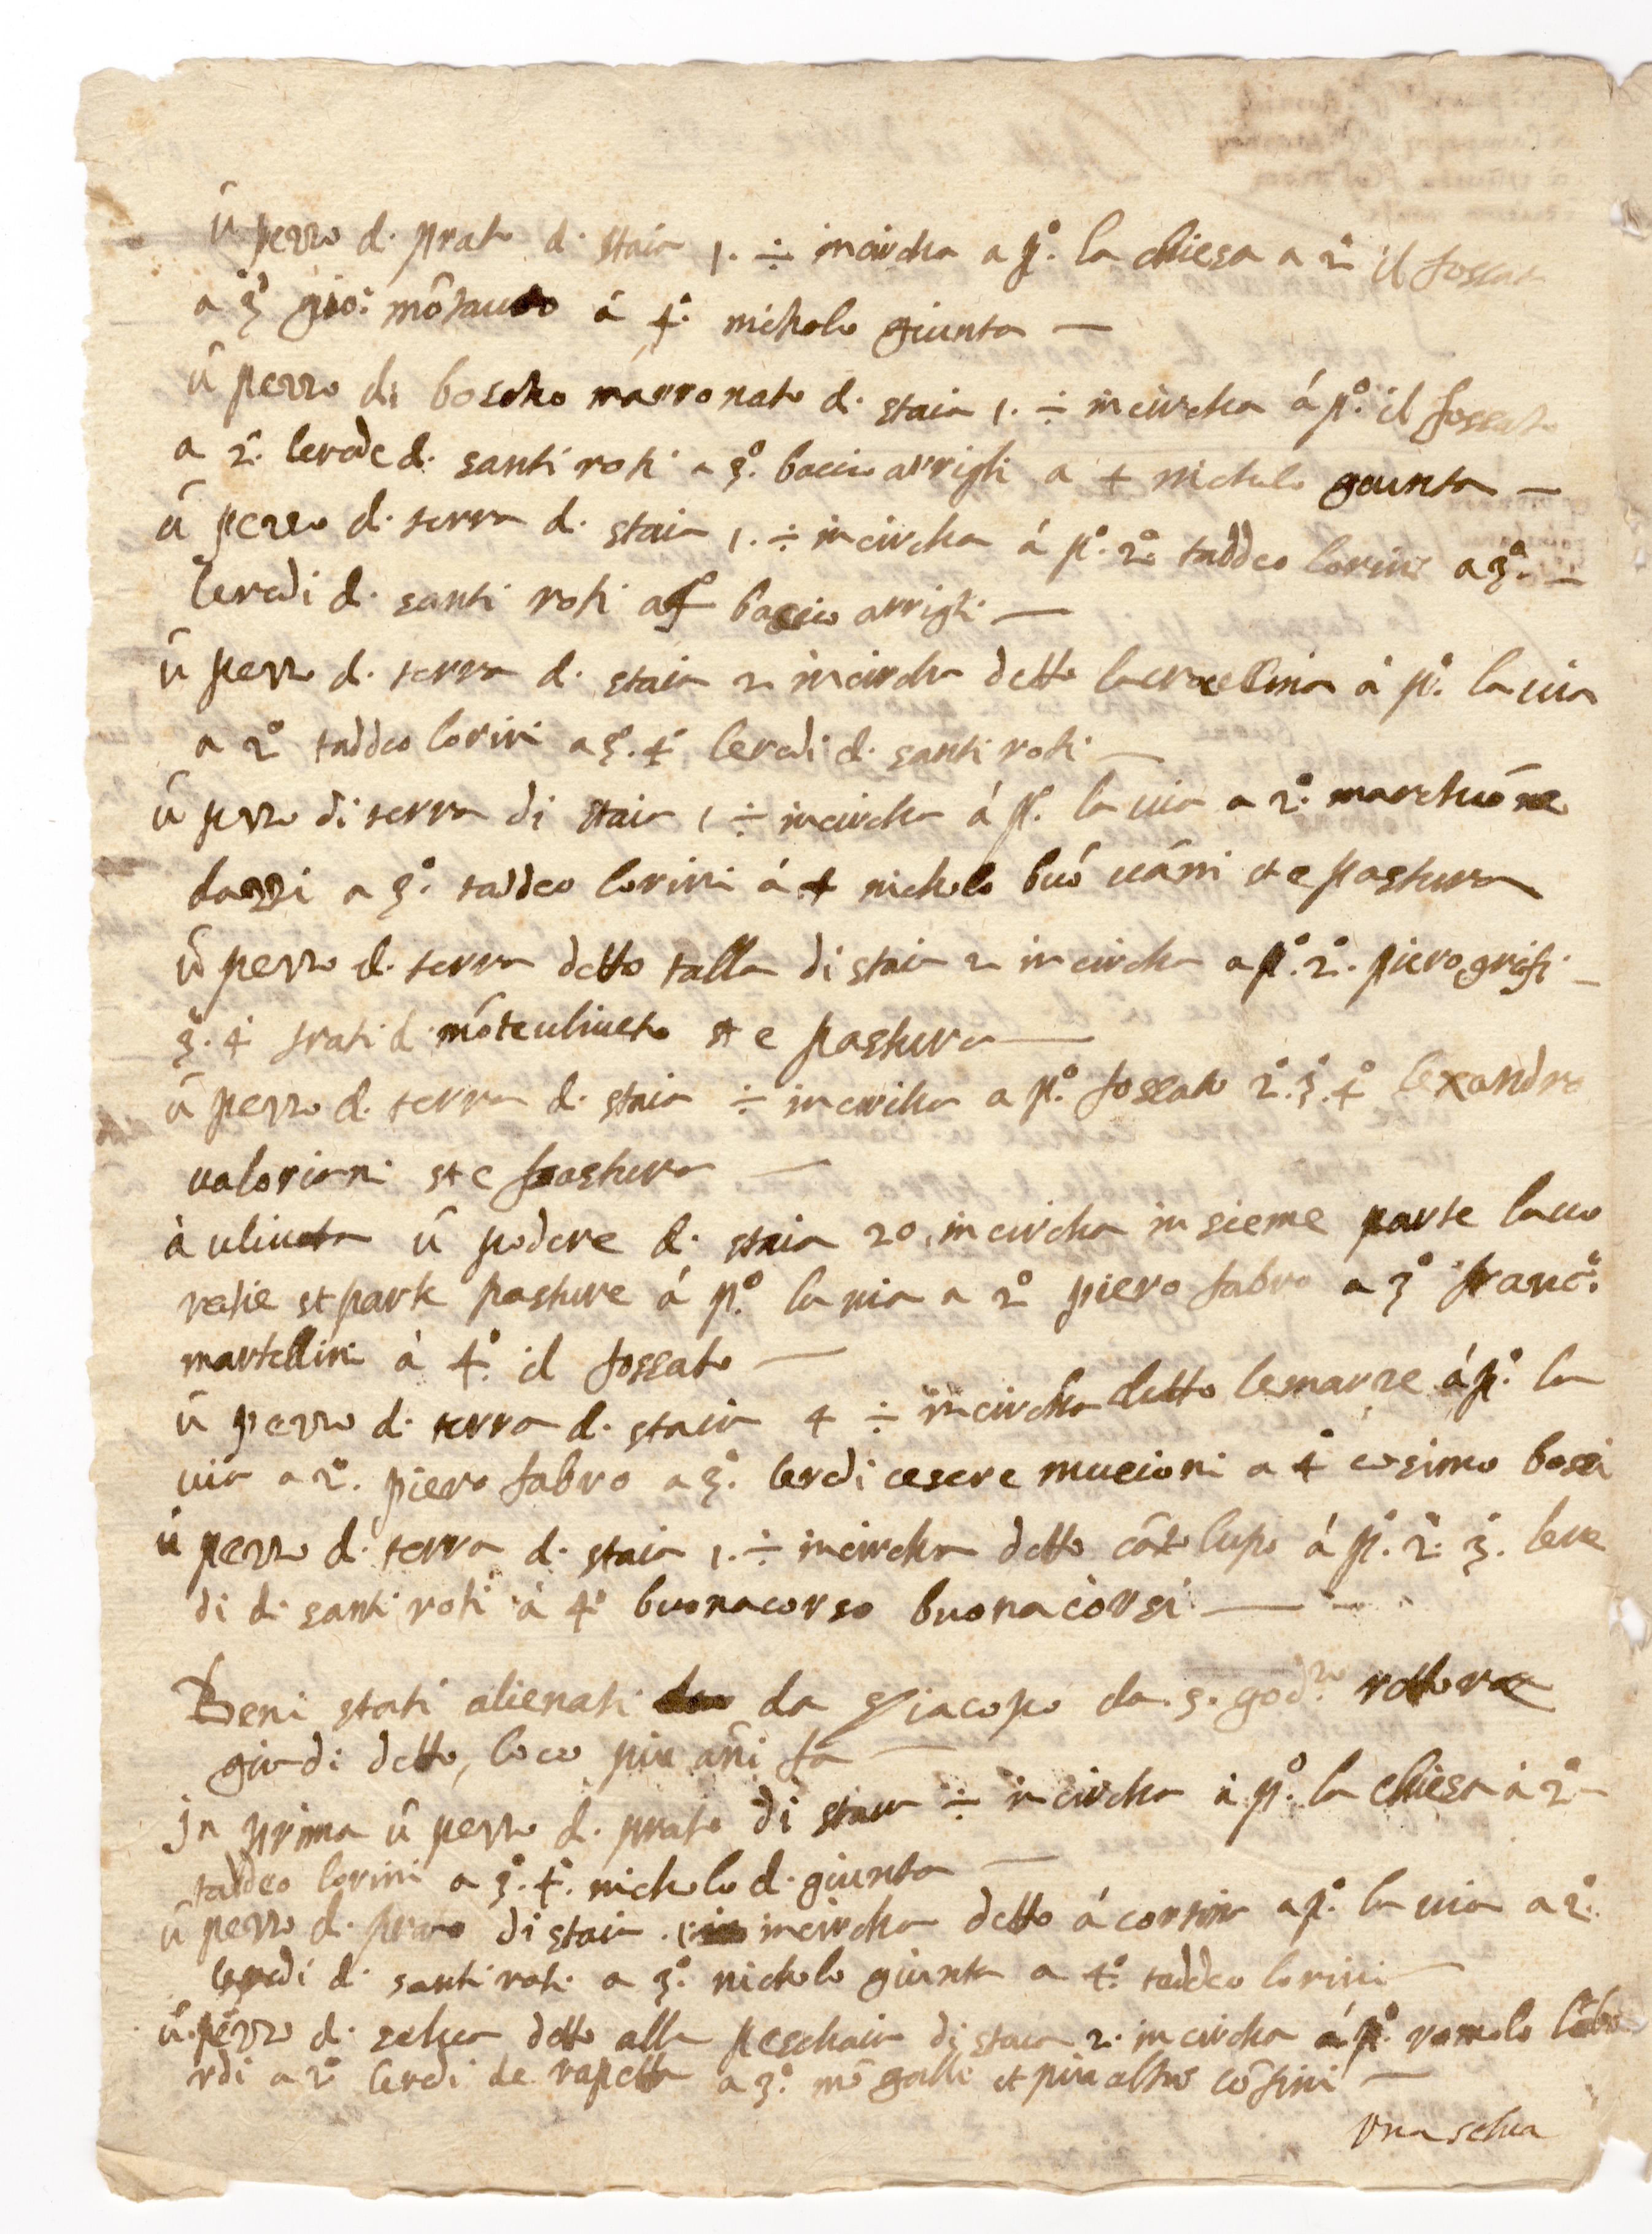 ũ pezzo d. prato d. staia 1. ÷ incircha a pº. la chiesa a 2º il fossato
a 3º gio: mõtauto á 4º. nicholo giunta —
ũ pezzo di boscho marronato d. staia 1. ÷ incircha á pº. il fossato
a 2º. lerede d. santi roti a 3º. baccio arrighi a 4 nicholo giunta —
ũ pezzo d. terra d. staia 1. ÷ incircha á pº. 2º. taddeo lorini a 3º. —
leredi d. santi roti a 4 baccio arrighi —
ũ pezzo d. terra d. staia 2 incircha detto lacrocellina á pº. la uia
a 2º taddeo lorini a 3º. 4º leredi d. santi roti —
ũ pezzo di terra di staia 1 ÷ incircha á pº. la uia a 2º. marchiõne
dazzi a 3º. taddeo lorini á 4 nicholo buõ uãni et e pastura
ũ pezzo d. terra detto talla di staia 2 incircha a pº. 2º. piero grifi —
3º. 4º frati d. mõteuliueto et e pastura —
ũ pezzo d. terra d. staia ÷ incircha a pº. fossato 2º. 3º. 4º lexandro
valoriani et e pastura —
à uliueta ũ podere d. staia 20 incircha insieme parte lauo
ratie et parte pasture á pº. la uia a 2º piero fabro a 3º francº.
martellini à 4º. il fossato —
ũ pezzo d. terra d. staia 4 ÷ incircha detto lemarze á pº. la
uia a 2º. piero fabro a 3º. leredi cesere mucioni a 4º cosimo bossi
ũ pezzo d. terra d. staia 1. ÷ incircha detto cãtolupo á pº. 2º. 3º. lere
di d. santi roti à 4º buonacorso buonacorsi —
Beni stati alienati da s. iacopo da. s. godzo rettore
gia di detto, loco piu ãni fa —
In prima ũ pezzo d. prato di staia ÷ incircha à pº. la chiesa à 2º
taddeo lorini a 3º. 4º. nicholo d. giunta —
ũ pezzo d. prato di staia 1 incircha detto á corsina a pº. la uia a 2º.
leredi d. santi roti a 3º. nicholo giunta a 4º. taddeo lorini —
ũ. pezzo d. selua detto alla peschaia di staia 2. incircha á pº. romolo lõba
rdi a 2º leredi de rapetta a 3º. mõ galli et piu altri cõfini —
vna selua